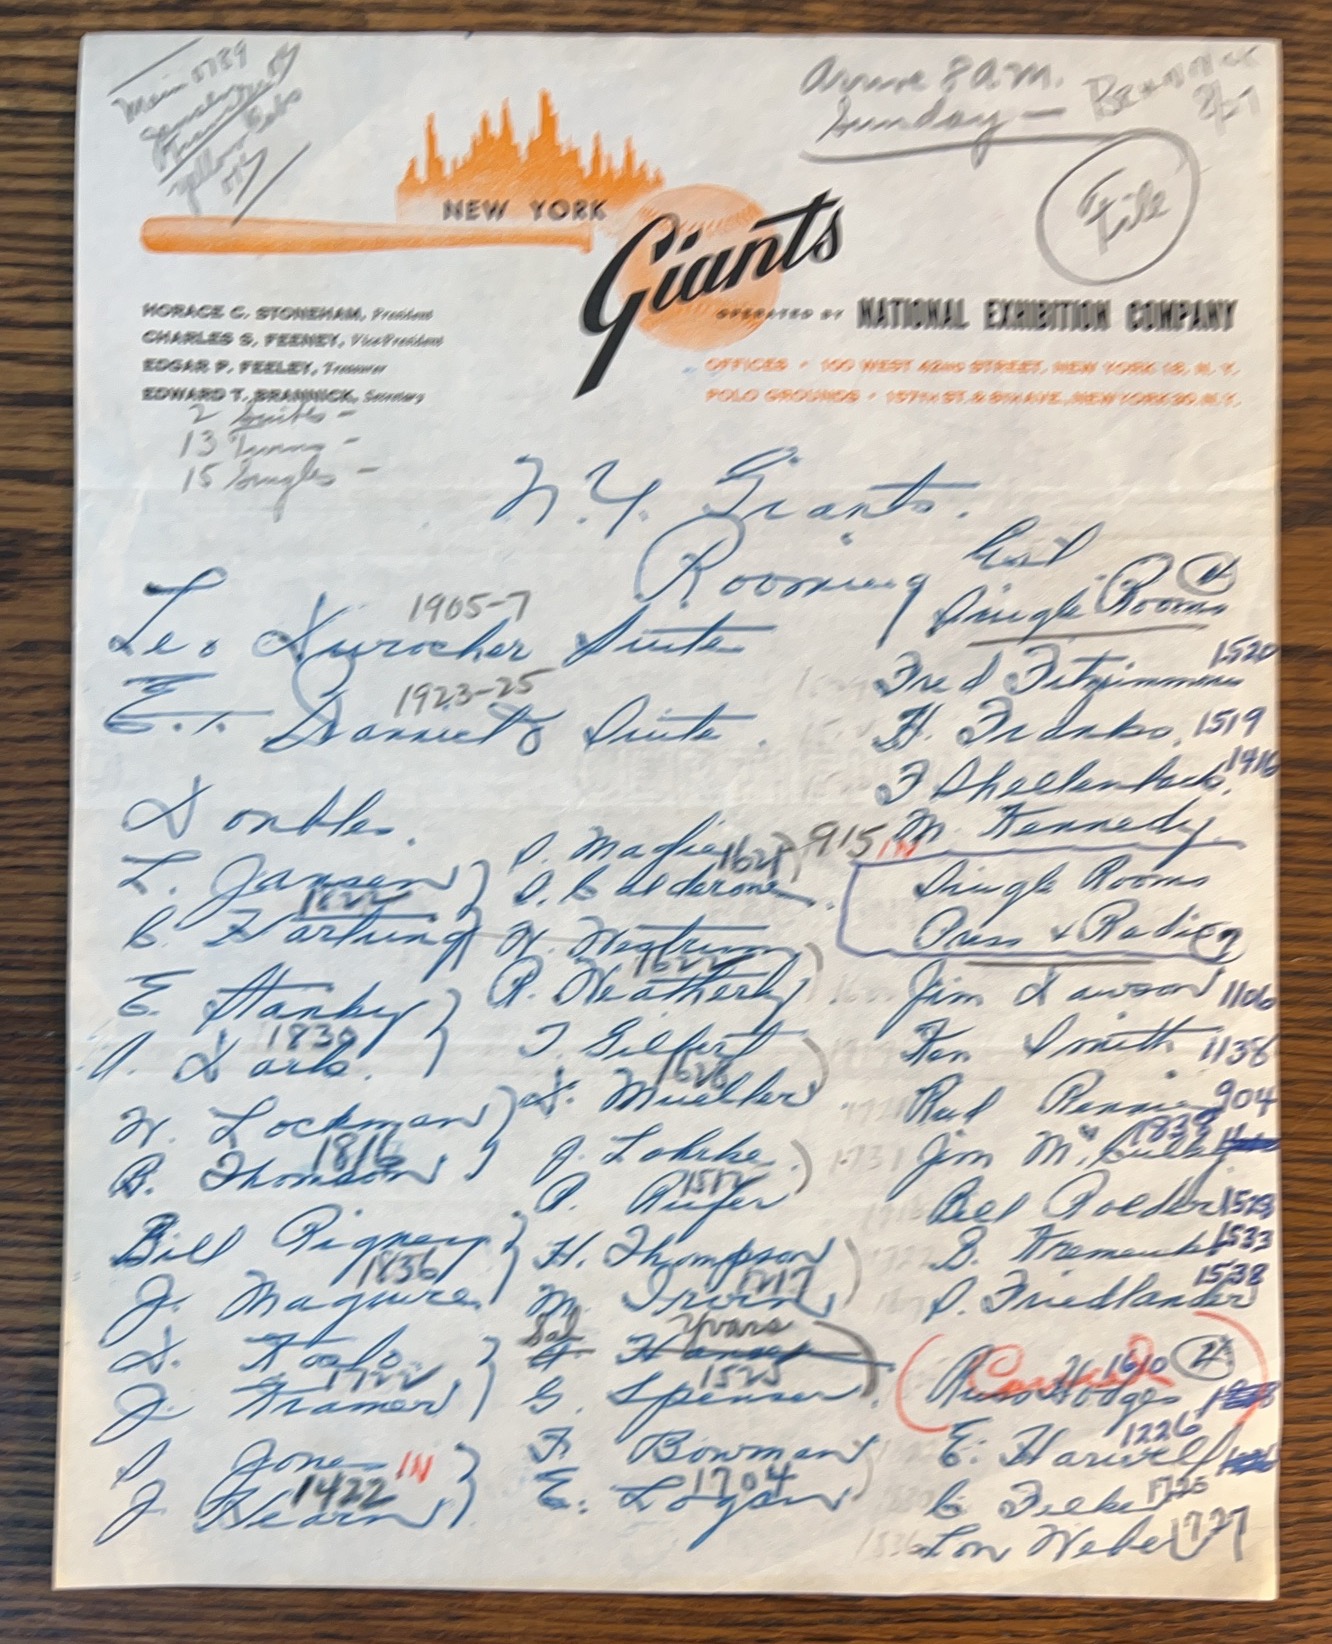 Main 0789
Yellow Cabs
Arrive 8 A.M.
Sunday —
Brannick
8/27
File
NEW YORK
Giants
OPERATED BY NATIONAL EXHIBITION COMPANY
OFFICES • 100 WEST 42ND STREET, NEW YORK 18, N.Y.
POLO GROUNDS • 157TH ST. & 8TH AVE., NEW YORK 30, N.Y.
HORACE C. STONEHAM, President
CHARLES S. FEENEY, Vice President
EDGAR P. FEELEY, Treasurer
EDWARD T. BRANNICK, Secretary
2 Suites -
13 Twins -
15 Singles -
N.Y. Giants.
Rooming List
1905-7
Leo Durocher Suite
1923-25
E.T. Brannick Suite.
Doubles.
L. Jansen
1822
C. Hartung
E. Stanky
1830
A. Dark.
W. Lockman
1816
B. Thomson
Bill Rigney
1836
J. Maguire
D. Koslo
1722
J. Kramer
S. Jones IN
1422
J. Hearn
S. Maglie
S. Calderone
W. Westrum
1622
R. Weatherly
T. Gilbert
1628
D. Mueller
J. Lohrke
1517
R. Rufer
H. Thompson
1717
M. Irvin
Sal Yvars
H. Hansen
1525
G. Spenser
F. Bowman
1704
E. Logan
Single Rooms 4
Fred Fitzsimmons 1520
H. Franks. 1519
F Shellenback. 1416
915 IN M. Kennedy
Single Rooms
Press & Radio
Jim Dawson 1106
Ken Smith 1136
Rud Rennie 904
Jim McCulley 1839
Bill Roeder 1523
B. Kremenko 1533
S. Friedlander 1538
Russ Hodges 1610 4
Cancel
E. Harwell 1226
C. Feeke 1725
Lon Weber 1727